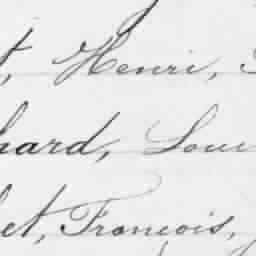 t, Henri,
hard, Loui
et, François,